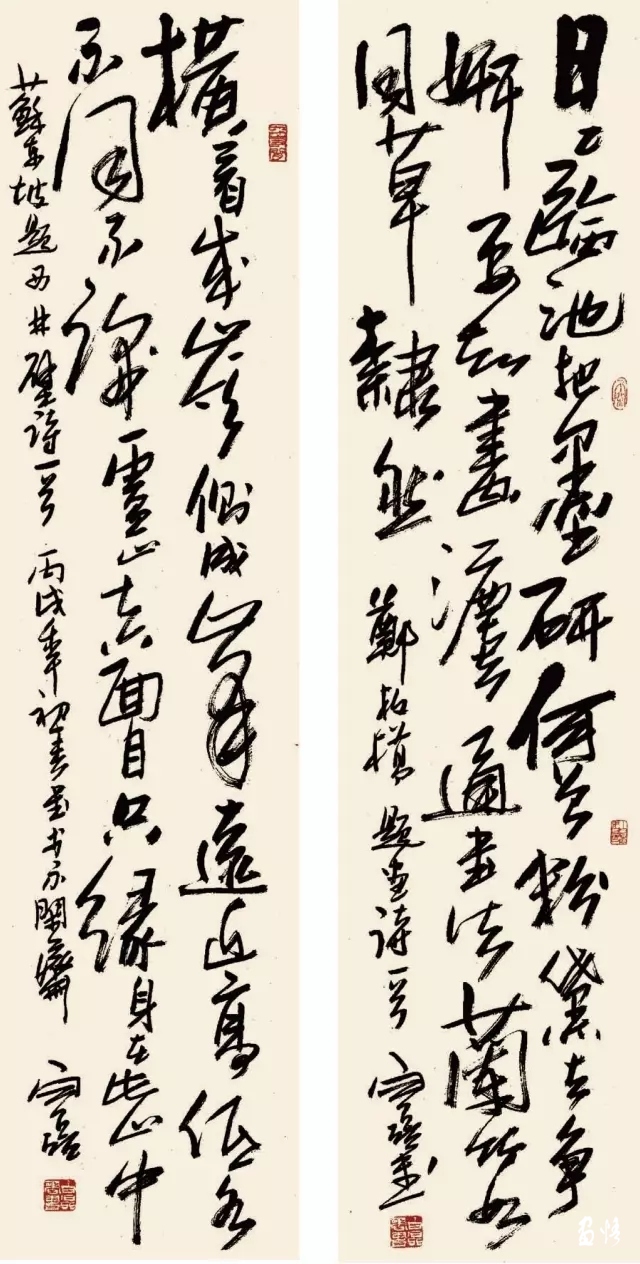 日〻臨池把墨研何曾粉黛去争
妍要知畫灋通書法蘭竹如
同草隸然 鄭板橋題畫詩一首
橫看成嶺側成峯遠近高低各
不同不識廬山真面目只緣身在此山中
蘇東坡題西林壁詩一首 丙戌年初春